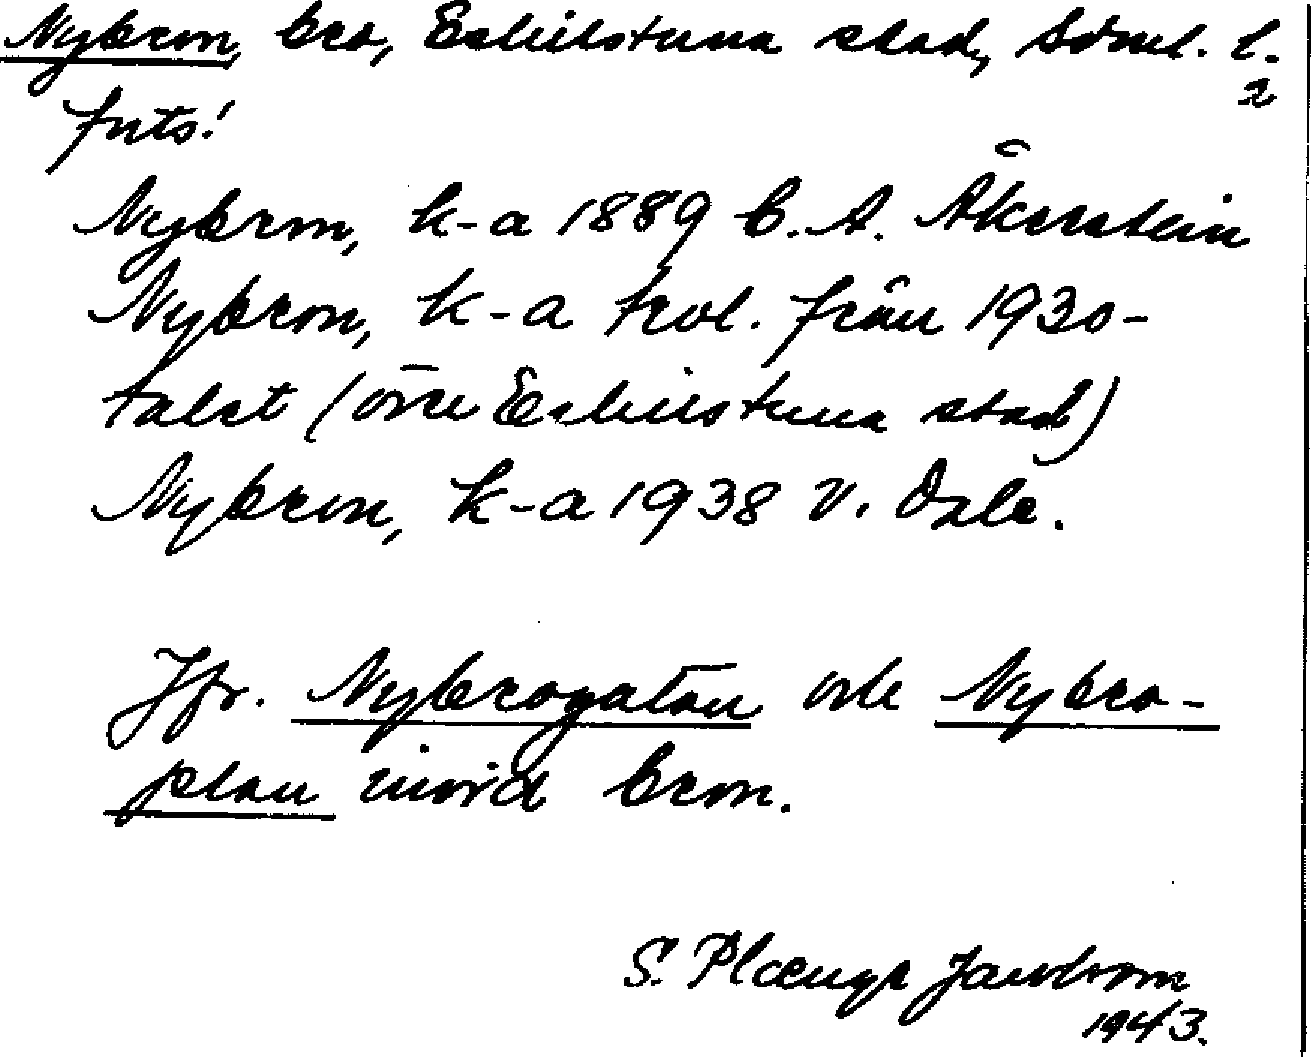 Nybron, bro, Eskilstuna stad, Södml. l.
2
forts!
Nybron, k-a 1889 C. A. Åkerstein
Nybron, k-a trol. från 1930-
talet (över Eskilstuna stad)
Nybron, k-a 1938 V. Dale.
Jfr. Nybrogatan och Nybro-
plan invid bron.
S. Plænge Jacobson
1943.